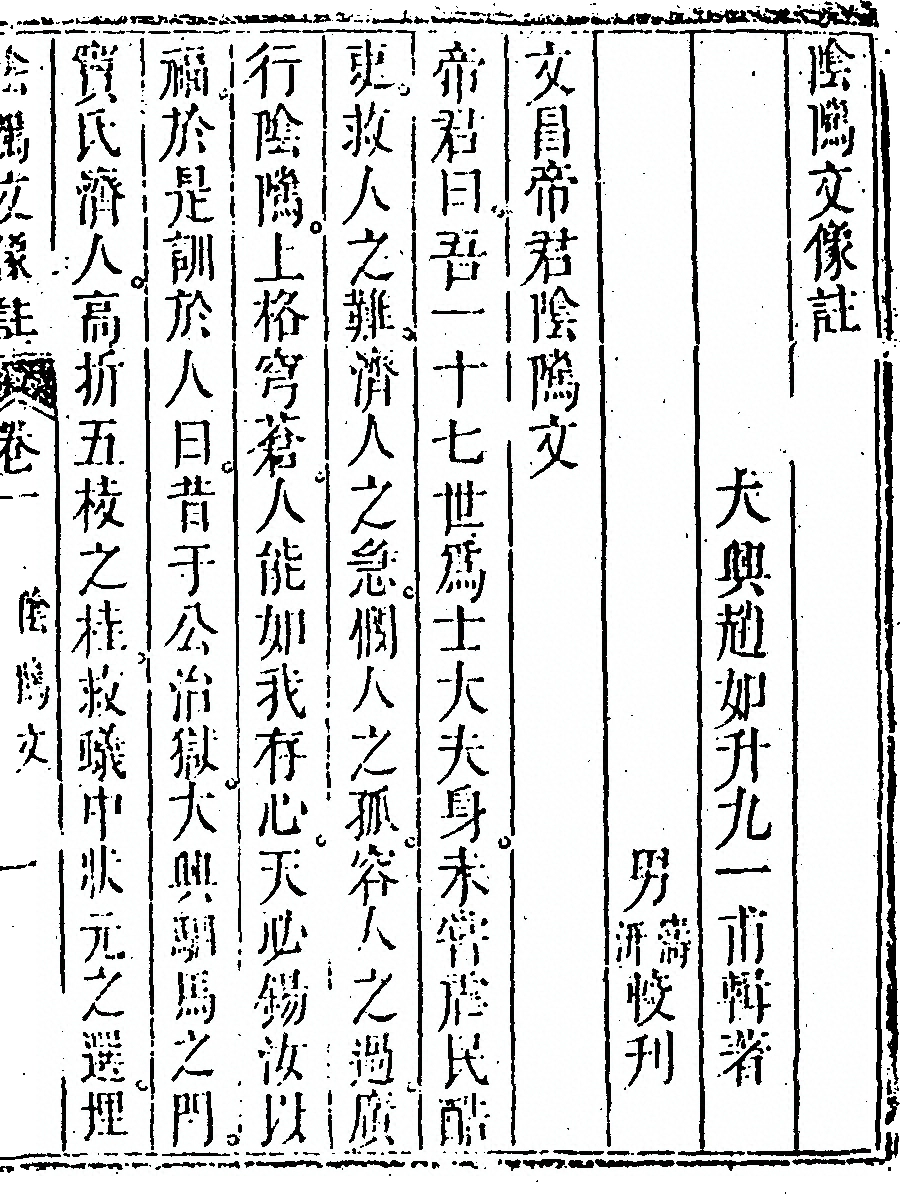 陰騭文像註
大興趙如升九一甫輯著
男
濤
汧
校刊
文昌帝君陰騭文
帝君曰吾一十七世爲士大夫身未嘗虐民酷
吏救人之難濟人之急憫人之孤容人之過廣
行陰騭上格穹蒼人能如我存心天必錫汝以
福於是訓於人曰昔于公治獄大興駟馬之門
竇氏濟人高折五枝之桂救蟻中狀元之選埋
陰騭文像註 卷一 陰騭文 一